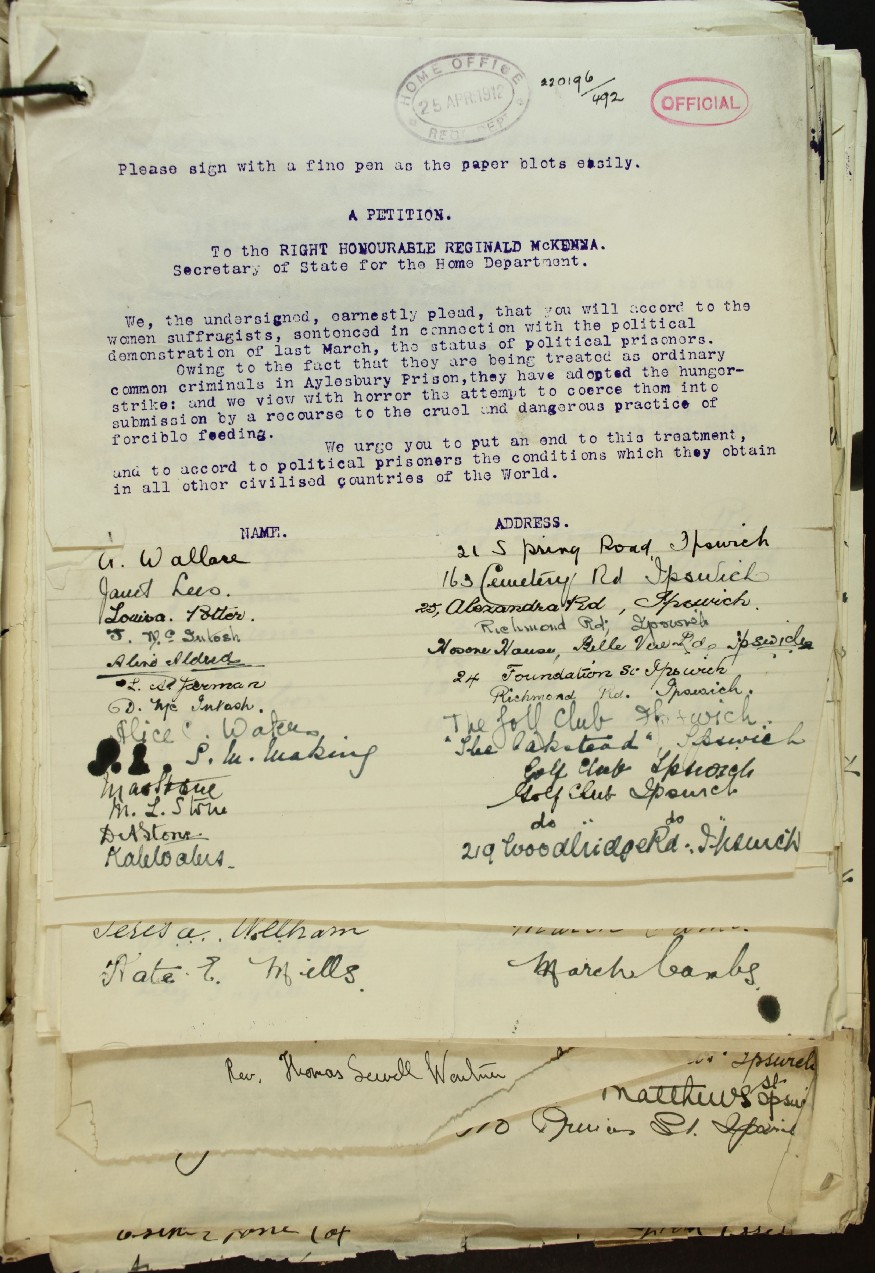 HOME OFFICE
25 APR 1912
REGD DEPT
220196/492
OFFICIAL
Please sign with a fine pen as the paper blots easily.
A PETITION.
To the RIGHT HONOURABLE REGINALD McKENNA.
Secretary of State for the Home Department.
We, the undersigned, earnestly plead, that you will accord to the
women suffragists, sentenced in connection with the political
demonstration of last March, the status of political prisoners.
Owing to the fact that they are being treated as ordinary
common criminals in Aylesbury Prison, they have adopted the hunger-
strike: and we view with horror the attempt to coerce them into
submission by a recourse to the cruel and dangerous practice of
forcible feeding.
We urge you to put an end to this treatment,
and to accord to political prisoners the conditions which they obtain
in all other civilised countries of the World.
NAME. ADDRESS.
Wallace 21 Spring Road, Ipswich
Janet Lees. 163 Cemetery Rd Ipswich
Louisa. Potter. 25, Alexandra Rd, Ipswich.
F. McIntosh Richmond Rd; Ipswich
Aldred House, Belle Vue Rd, Ipswich
Jarman 24 Foundation St Ipswich
D. Mc Intosh. Richmond Rd. Ipswich.
Alice The Golf Club Ipswich.
S. M. Making "The Oakstead", Ipswich
Golf Club Ipswich
M. L. Stone Golf Club Ipswich
Stone do " do "
219 Woodbridge Rd. Ipswich
Teresa. Weltham
Kate E. Mills. March Cambs.
Rev. Thomas Sewell Ipswich
Matthews St Ipswi
St.